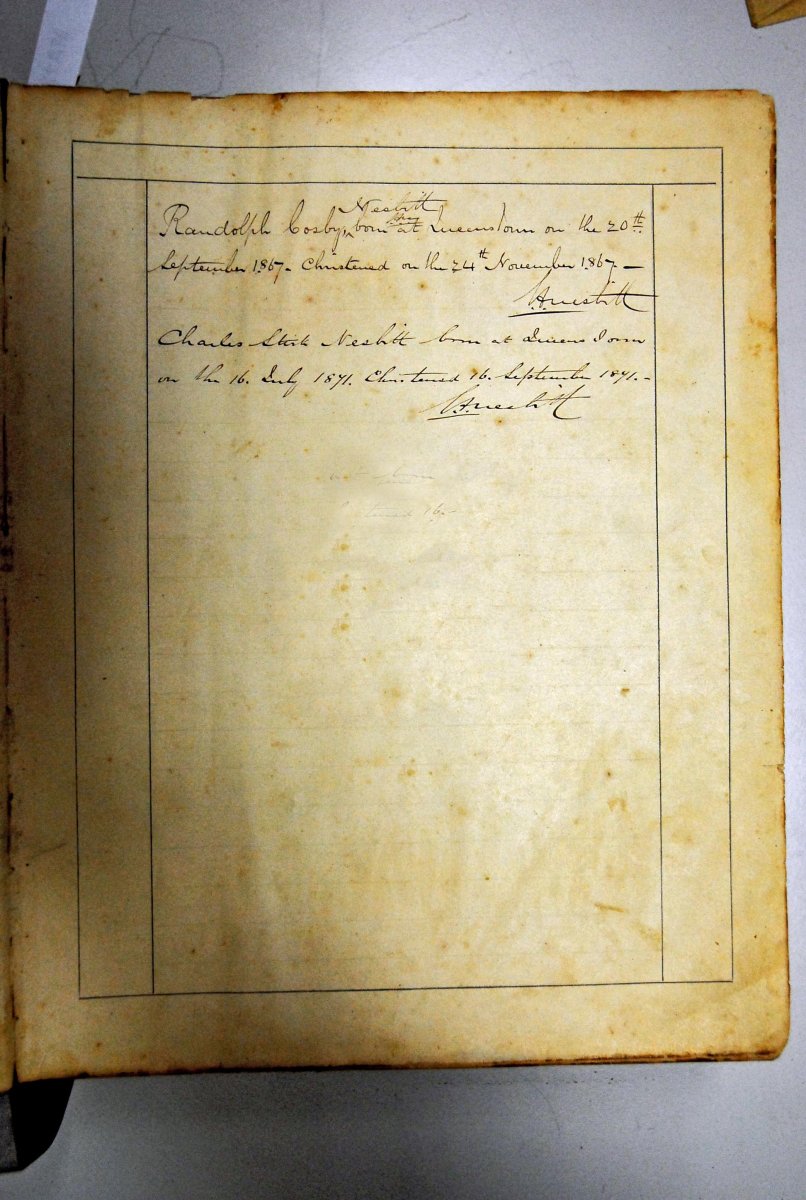 Nesbitt
Randolph Cosby, born at Queenstown on the 20th
September 1867 - Christened on the 24th November 1867 -
Nesbitt
Charles Nesbitt born at Queenstown
on the 16. July 1871. Christened 16. September 1871. -
Nesbitt
born
16